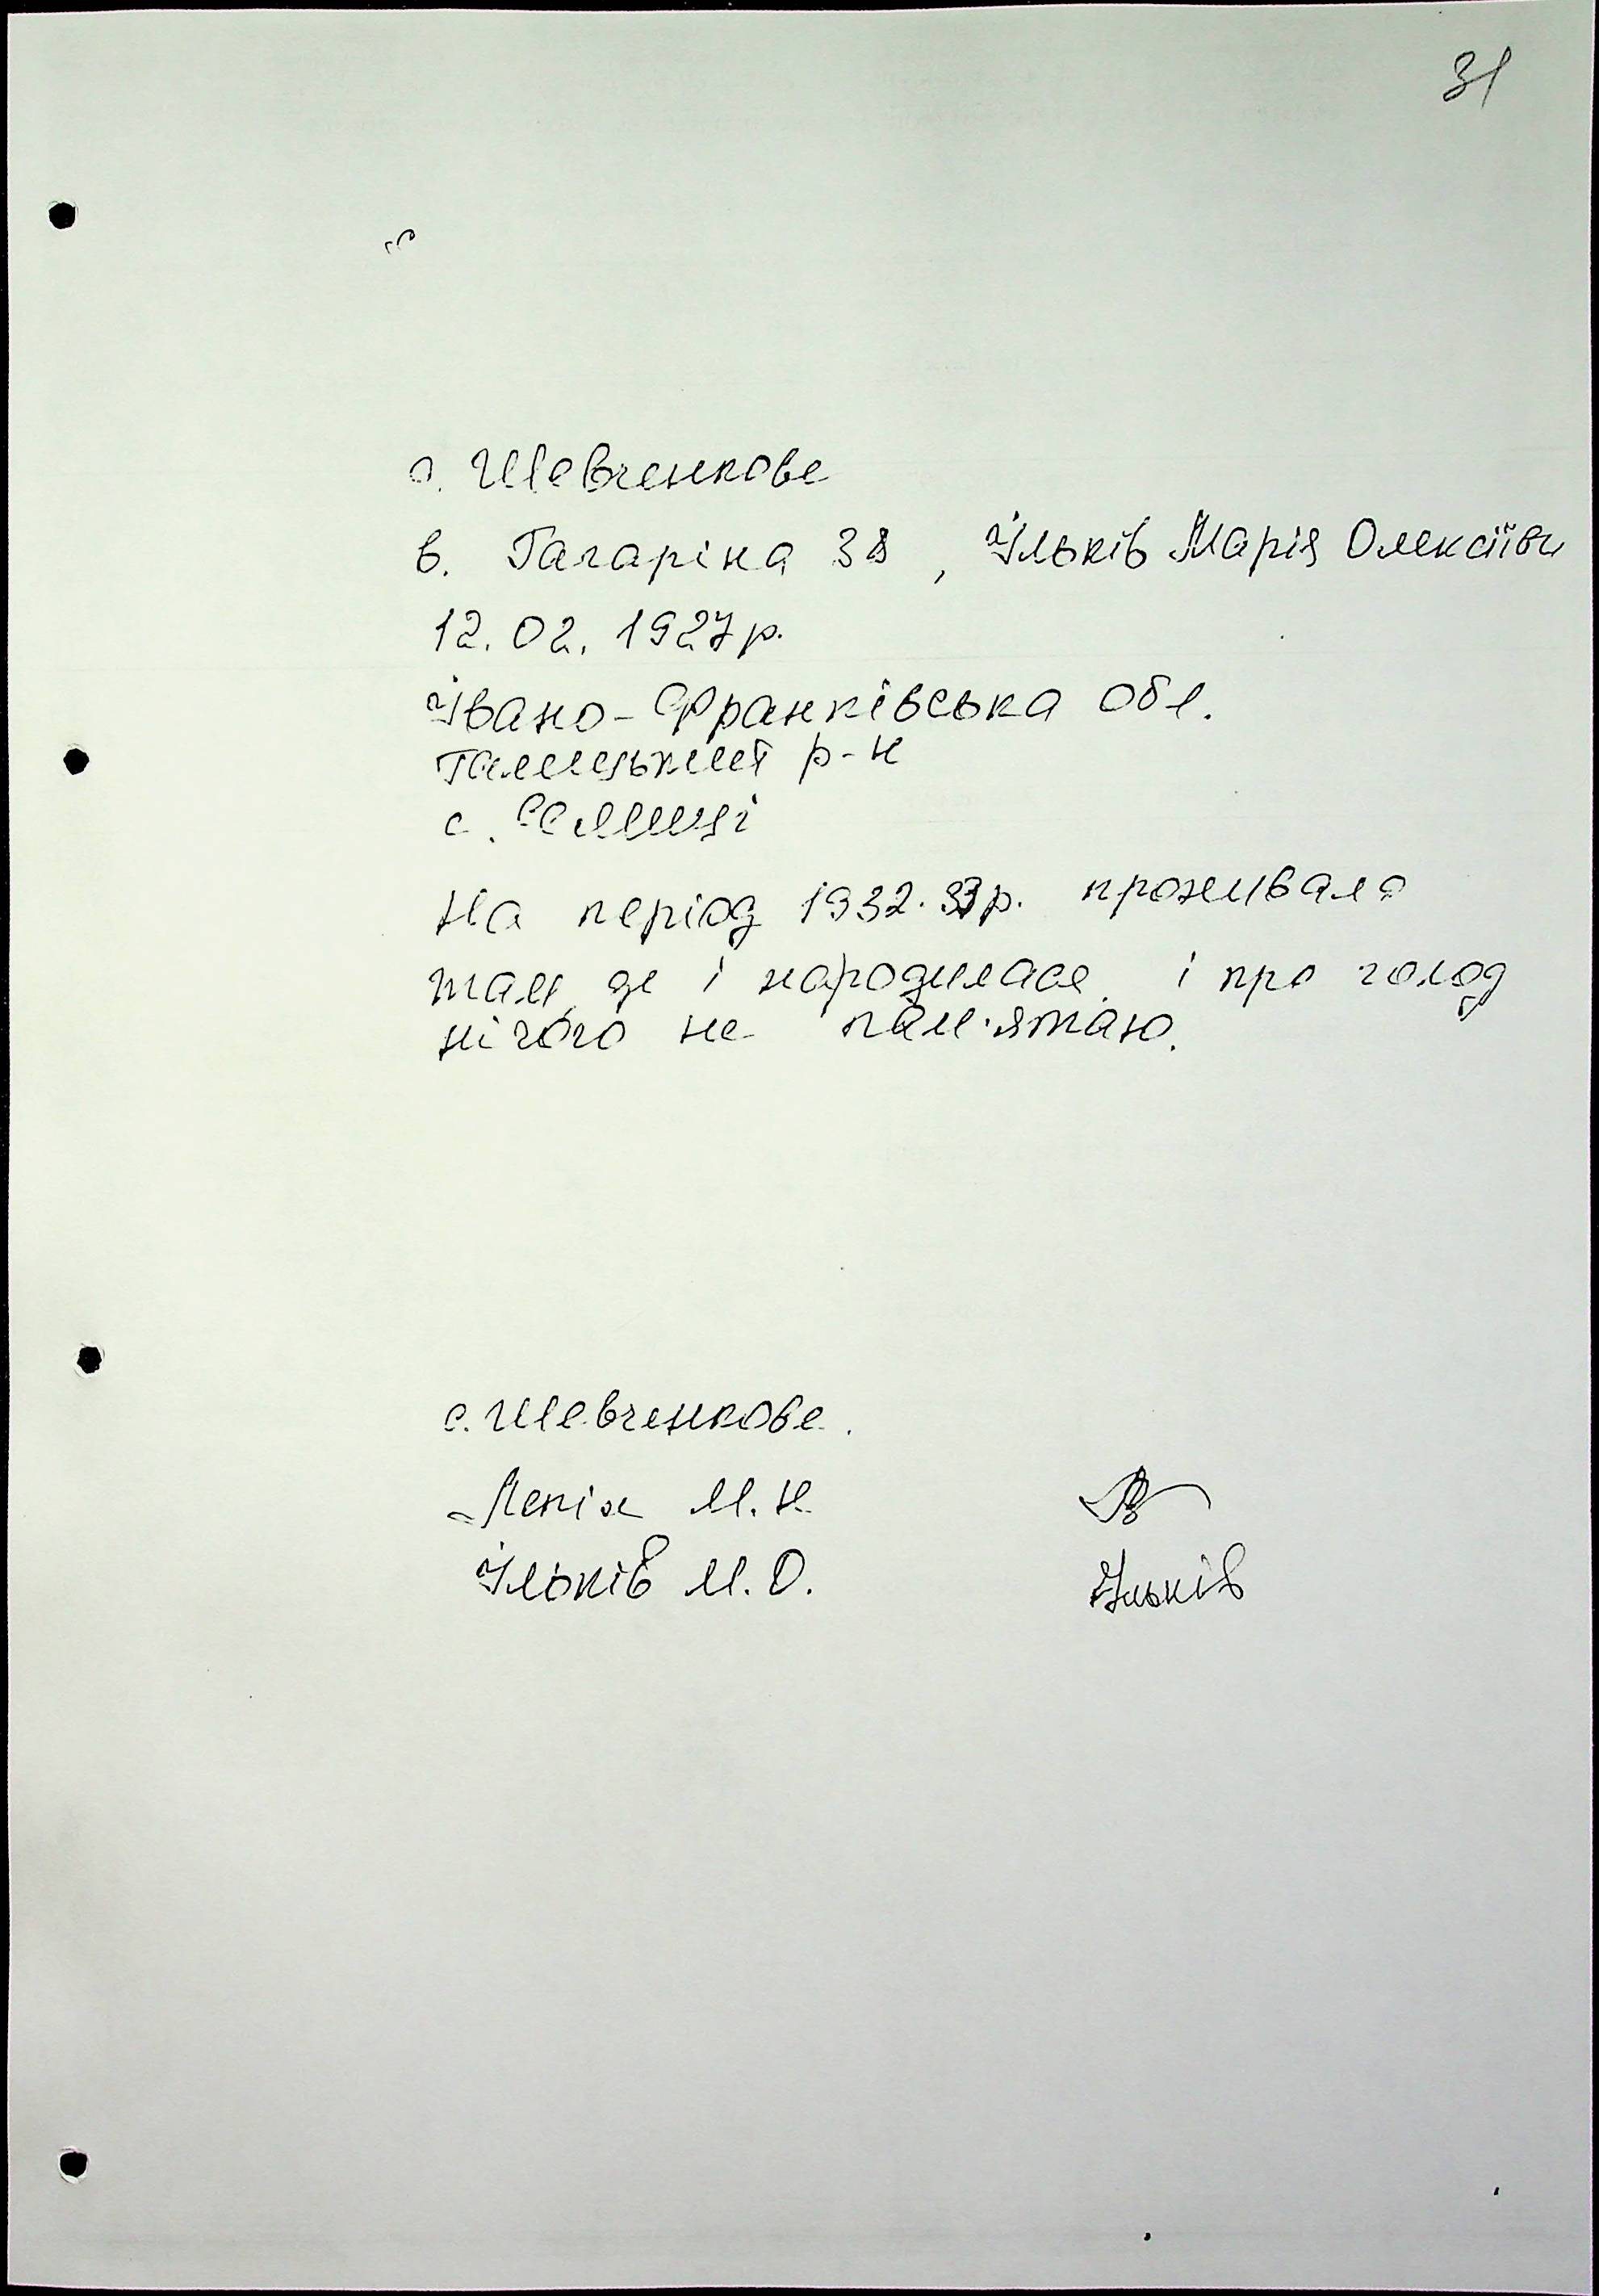 31
с. Шевченкове
в. Гагаріна 38, Ільків Марія Олексіївн
12.02.1927 р.
Івано-Франківська обл.
Галицький р-н
с.
На період 1932.33 р. проживала
там, де і народилася і про голод
нічого не пам'ятаю.
с. Шевченкове.
М. Н.
Ільків М. О.
Ільків